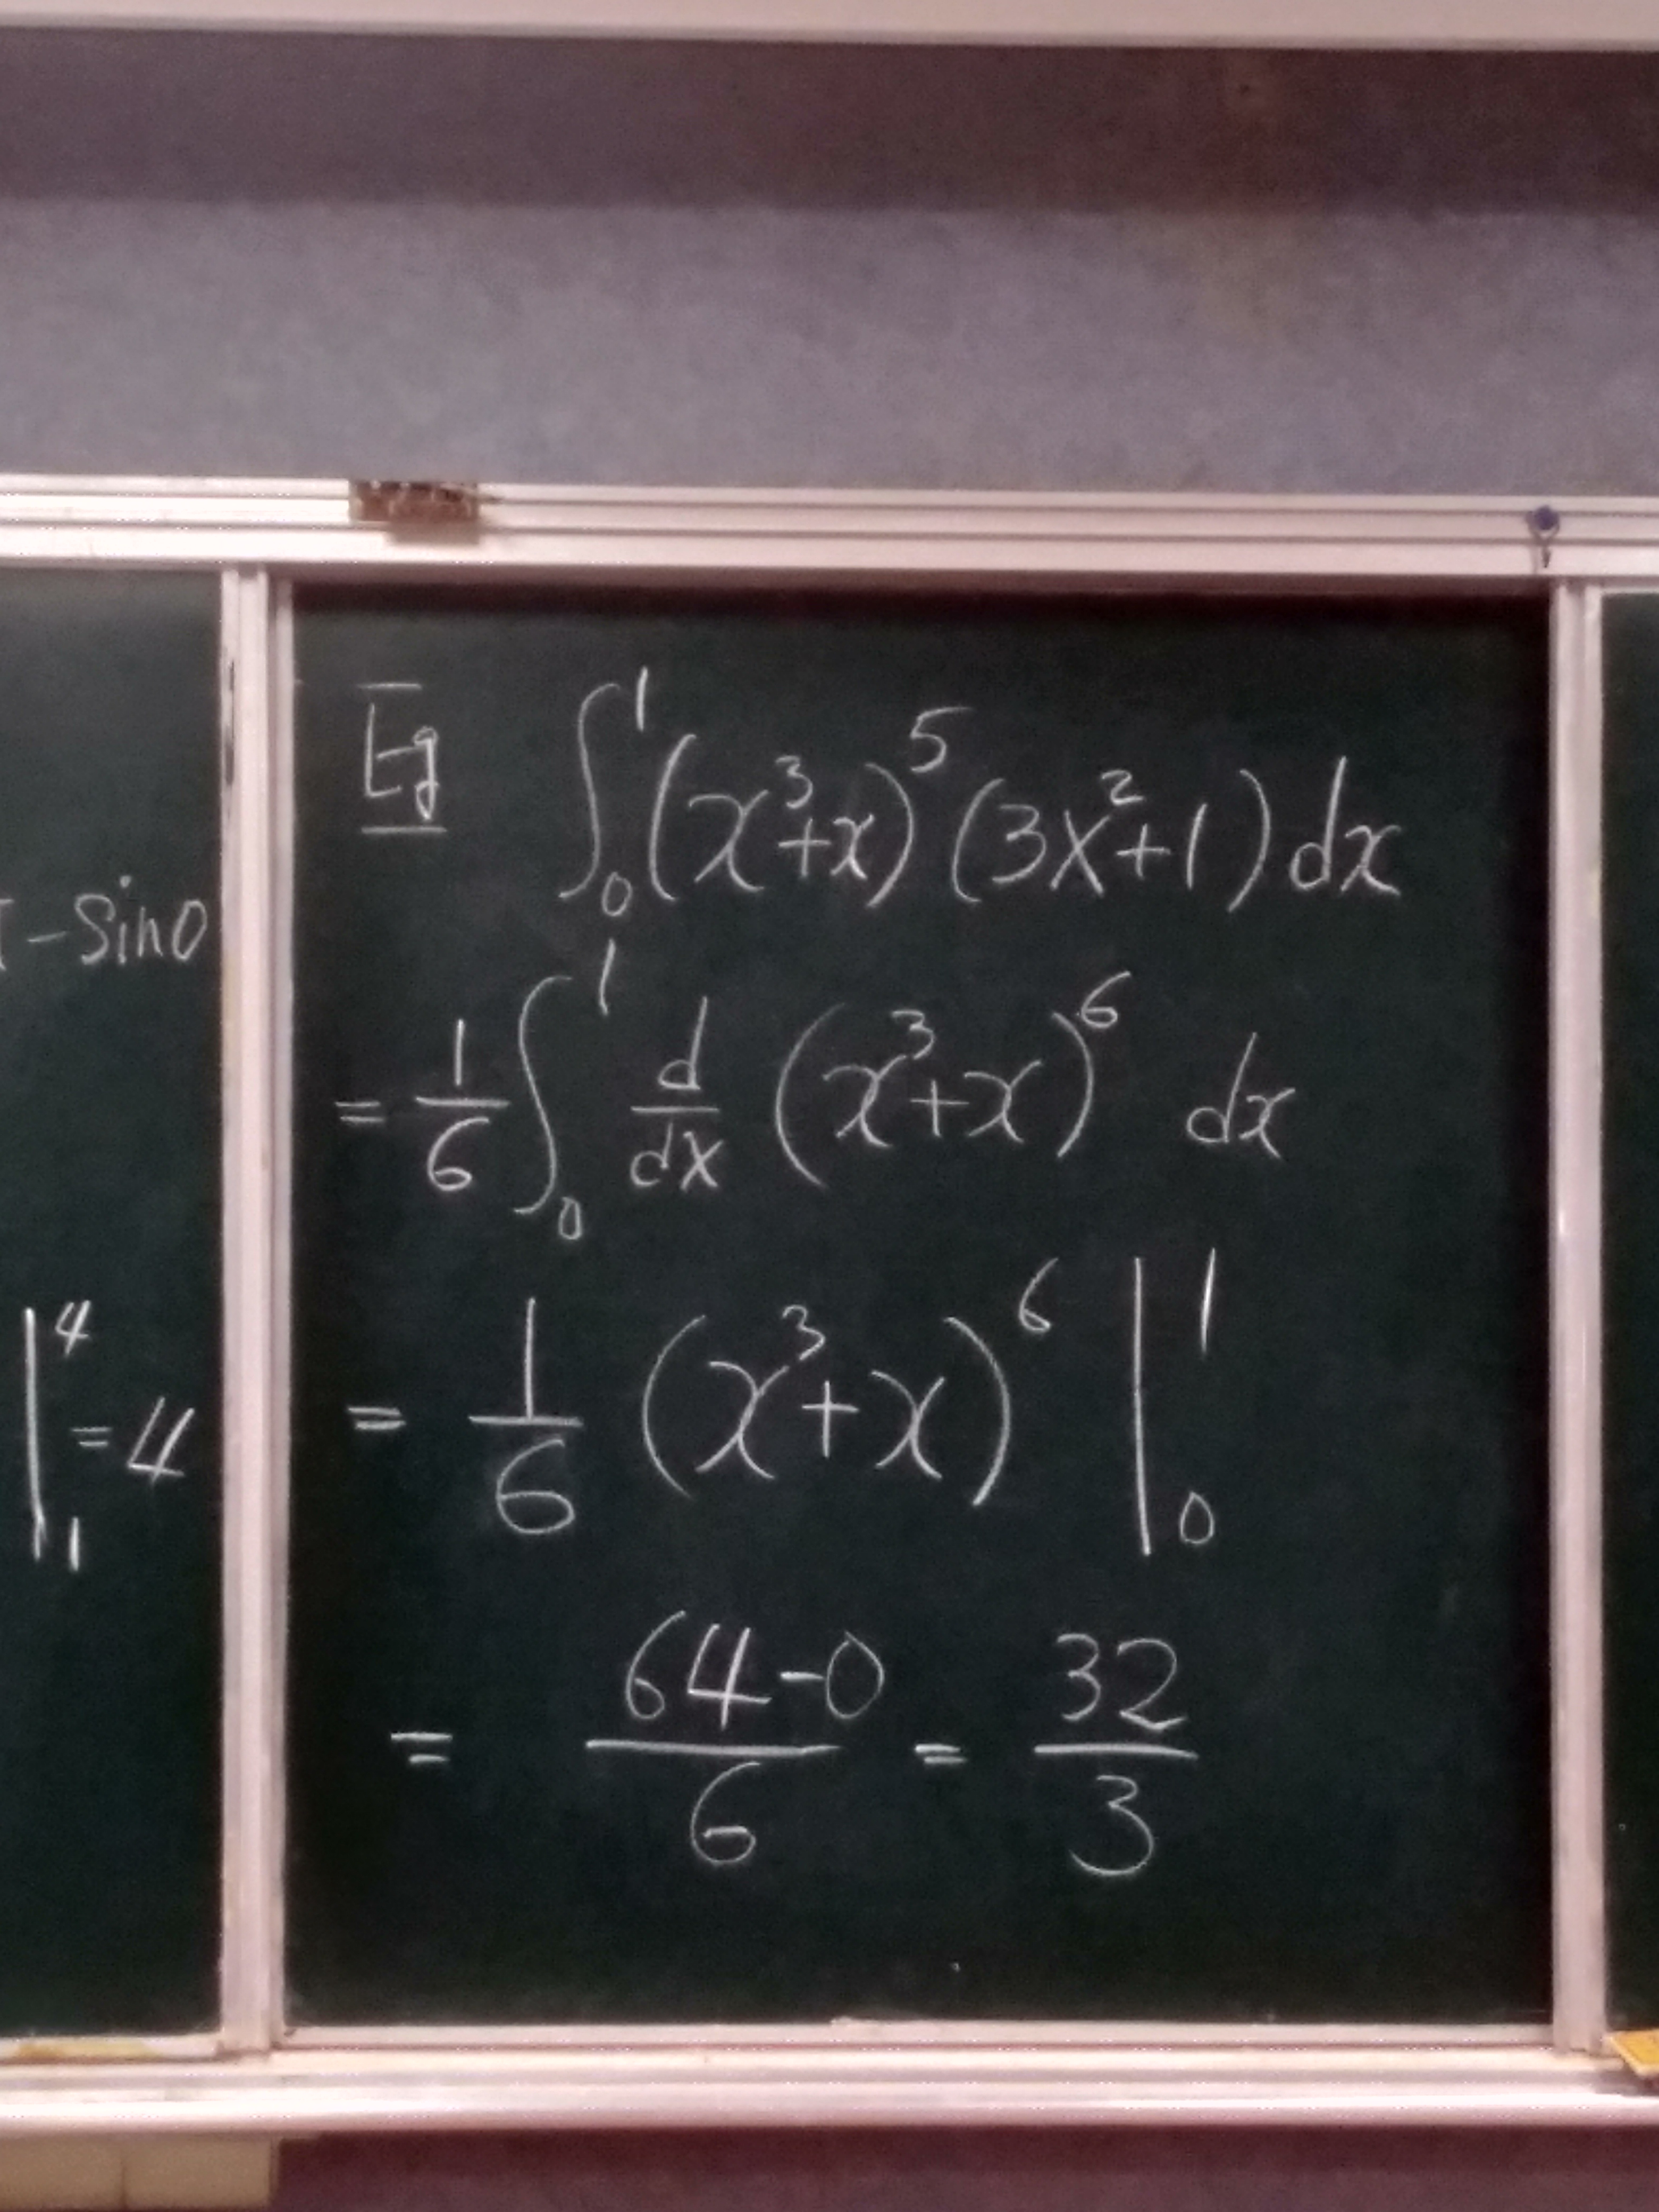 -sin0
|⁴₁ =4
Eg ∫₀¹(x³+x)⁵(3x²+1)dx
= 1/6 ∫₀¹ d/dx (x³+x)⁶ dx
= 1/6 (x³+x)⁶ |₀¹
= 64-0/6 = 32/3